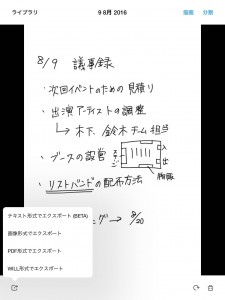 ライブラリ
9 8月 2016
編集
分割
8/9 議事録
・次回イベントのための見積り
・出演アーティストの調整
→木下、鈴木チーム担当
・ブースの設営
ステージ
入
出
・リストバンドの配布方法
グ→ 8/20
テキスト形式でエクスポート (BETA)
画像形式でエクスポート
PDF形式でエクスポート
WILL形式でエクスポート